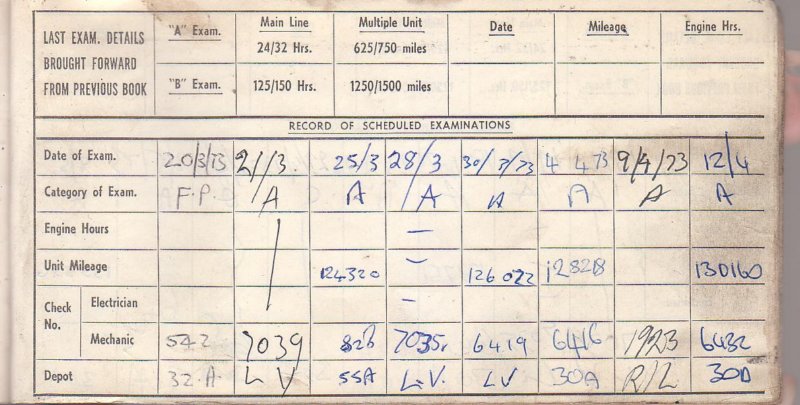 LAST EXAM. DETAILS BROUGHT FORWARD FROM PREVIOUS BOOK
"A" Exam. Main Line 24/32 Hrs. Multiple Unit 625/750 miles Date Mileage Engine Hrs.
"B" Exam. 125/150 Hrs. 1250/1500 miles
RECORD OF SCHEDULED EXAMINATIONS
Date of Exam. 20/3/73 21/3. 25/3 28/3 30/3/73 4 4 73 9/4/73 12/4
Category of Exam. F.P. A A A A A A A
Engine Hours —
Unit Mileage 124320 126022 128218 130160
Check No. Electrician –
Mechanic 542 7039 826 7035. 6419 6416 1923 6432
Depot 32.A L V 55A L.V. LV 30A R/L 30A